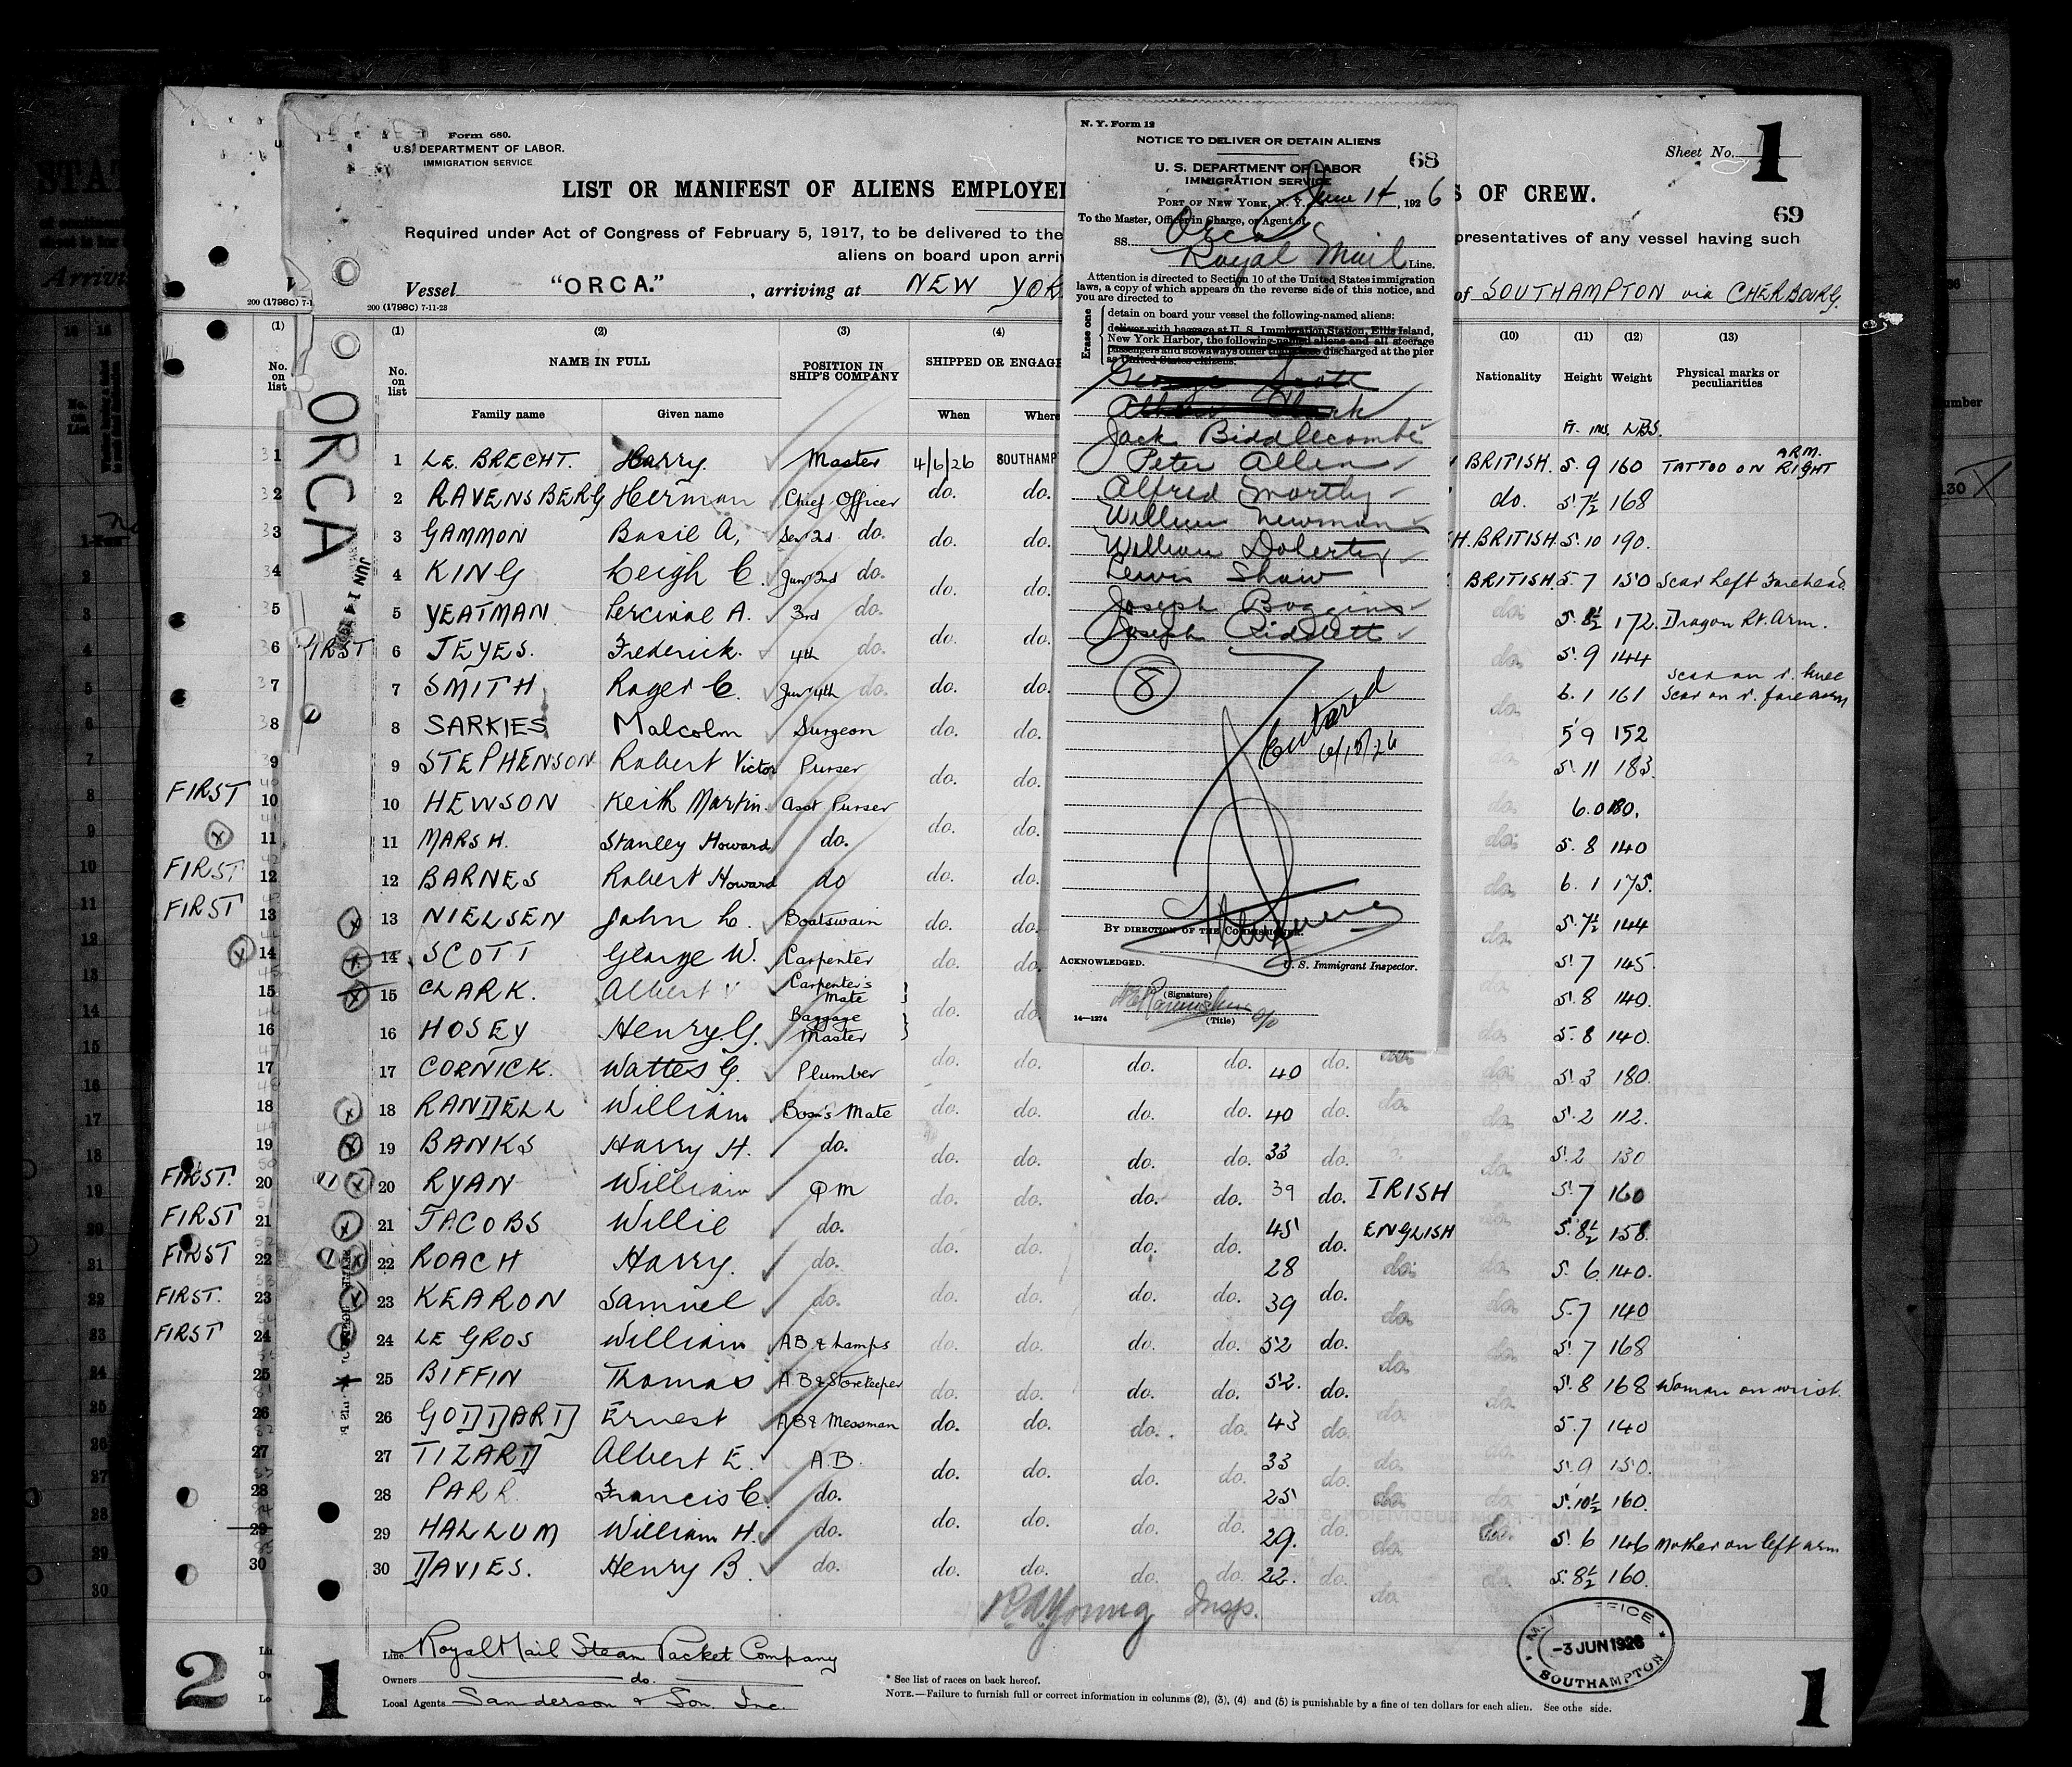 Form 680.
U.S. DEPARTMENT OF LABOR.
IMMIGRATION SERVICE
LIST OR MANIFEST OF ALIENS EMPLOYE
S OF CREW.
Sheet No. 1
69
Required under Act of Congress of February 5, 1917, to be delivered to the
presentatives of any vessel having such
aliens on board upon arri
Vessel "ORCA." , arriving at NEW YOR
of SOUTHAMPTON via CHERBOURG.
200 (1798C) 7-1
200 (1798C) 7-11-23
(1) (1) (2) (3) (4) (10) (11) (12) (13)
No. on list
No. on list
NAME IN FULL
POSITION IN SHIP'S COMPANY
SHIPPED OR ENGAGE
Nationality Height Weight Physical marks or peculiarities
Family name Given name When Where
Ft. ins. LBS.
1 LE. BRECHT. Harry. Master 4/6/26 SOUTHAMP BRITISH. 5.9 160 TATTOO ON RIGHT ARM.
2 RAVENSBERG Herman Chief Officer do. do. do. 5.7½ 168
3 GAMMON Basil A, Sen 2nd do. do. do. H. BRITISH. 5.10 190.
4 KING Leigh C. Jun 2nd do. do. do. BRITISH. 5.7 150 Scar Left Forehead
5 YEATMAN Percival A. 3rd do. do. do. do. 5.8½ 172. Dragon Rt. Arm.
FIRST 6 JEYES. Frederick. 4th do. do. do. do. 5.9 144
7 SMITH Roger C. Jun 4th do. do. do. do. 6.1 161 Scar on r. knee Scar on r. forearm
8 SARKIES Malcolm Surgeon do. do. 5 9 152
9 STEPHENSON Robert Victor Purser do. do. 5.11 183.
FIRST 10 10 HEWSON Keith Martin. Asst Purser do. 6.0 180.
11 11 MARSH. Stanley Howard do. do. do. do. 5.8 140
FIRST 12 12 BARNES Robert Howard do do. do. do. 6.1 175.
FIRST 13 13 NIELSEN John C. Boatswain do. do. do. 5.7½ 144
14 14 SCOTT George W. Carpenter do. do. do. 5.7 145.
15 15 CLARK. Albert Carpenter's Mate 5.8 140.
16 16 HOSEY Henry. G. Baggage Master do. do. 5.8 140.
17 17 CORNICK. Wattes G. Plumber do. do. do. do. 40 do. do. 5.3 180.
18 18 RANDELL William Bosn's Mate do. do. do. do. 40 do. do. do. 5.2 112.
19 19 BANKS Harry H. do. do. do. do. do. 33 do. do. 5.2 130
FIRST. 20 20 RYAN William QM do. do. do. do. 39 do. IRISH 5.7 160
FIRST 21 21 JACOBS Willie do. do. do. do. do. 45 do. ENGLISH 5.8½ 158.
FIRST 22 22 ROACH Harry. do. do. do. do. do. 28 do. do. 5.6 140.
FIRST. 23 23 KEARON Samuel do. do. do. do. do. 39 do. do. do. 5.7 140
FIRST 24 24 LE GROS William AB & Lamps do. do. do. do. 52 do. do. do. 5.7 168
25 25 BIFFIN Thomas A.B & Storekeeper do. do. do. do. 52. do. do. do. 5.8 168 Woman on wrist.
26 26 GODDARD Ernest AB & Messman do. do. do. do. 43 do. do. do. 5.7 140
27 27 TIZARD Albert E. A.B. do. do. do. do. 33 do. do. do. 5.9 150.
28 28 PARR. Francis C. do. do. do. do. do. 25 do. do. do. 5.10½ 160.
29 29 HALLUM William H. do. do. do. do. do. 29. do. do. do. 5.6 146 Mother on left arm
30 30 DAVIES. Henry B. do. do. do. do. do. 22. do. do. do. 5.8½ 160.
R.A. Young Insp.
ORCA
JUN 14
N. Y. Form 12
NOTICE TO DELIVER OR DETAIN ALIENS
68
U. S. DEPARTMENT OF LABOR
IMMIGRATION SERVICE
PORT OF NEW YORK, N. Y. June 14, 1926
To the Master, Officer in Charge, or Agent of
SS. Orca
Royal Mail Line.
Attention is directed to Section 10 of the United States immigration
laws, a copy of which appears on the reverse side of this notice, and
you are directed to
Erase one
detain on board your vessel the following-named aliens:
deliver with baggage at U. S. Immigration Station, Ellis Island,
New York Harbor, the following-named aliens and all steerage
passengers and stowaways other than those discharged at the pier
as United States citizens.
George Scott
Albert Clark
Jack Biddlecombe
Peter Allen
Alfred Worthy
William Newman
William Doherty
Lewis Shaw
Joseph Boggins
Joseph Riddlett
8
Entered
6/15/26
BY DIRECTION OF THE COMMISSIONER.
ACKNOWLEDGED. U. S. Immigrant Inspector.
(Signature)
14—1274 (Title)
Line Royal Mail Steam Packet Company
Owners do.
Local Agents Sanderson & Son. Inc.
* See list of races on back hereof.
NOTE.—Failure to furnish full or correct information in columns (2), (3), (4) and (5) is punishable by a fine of ten dollars for each alien. See othe side.
OFFICE
-3 JUN 1926
SOUTHAMPTON
2
1
1